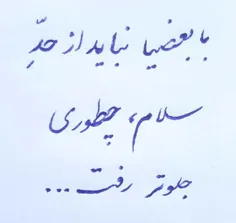 با بعضیا نباید از حدِّ
سلام، چطوری
جلوتر رفت...